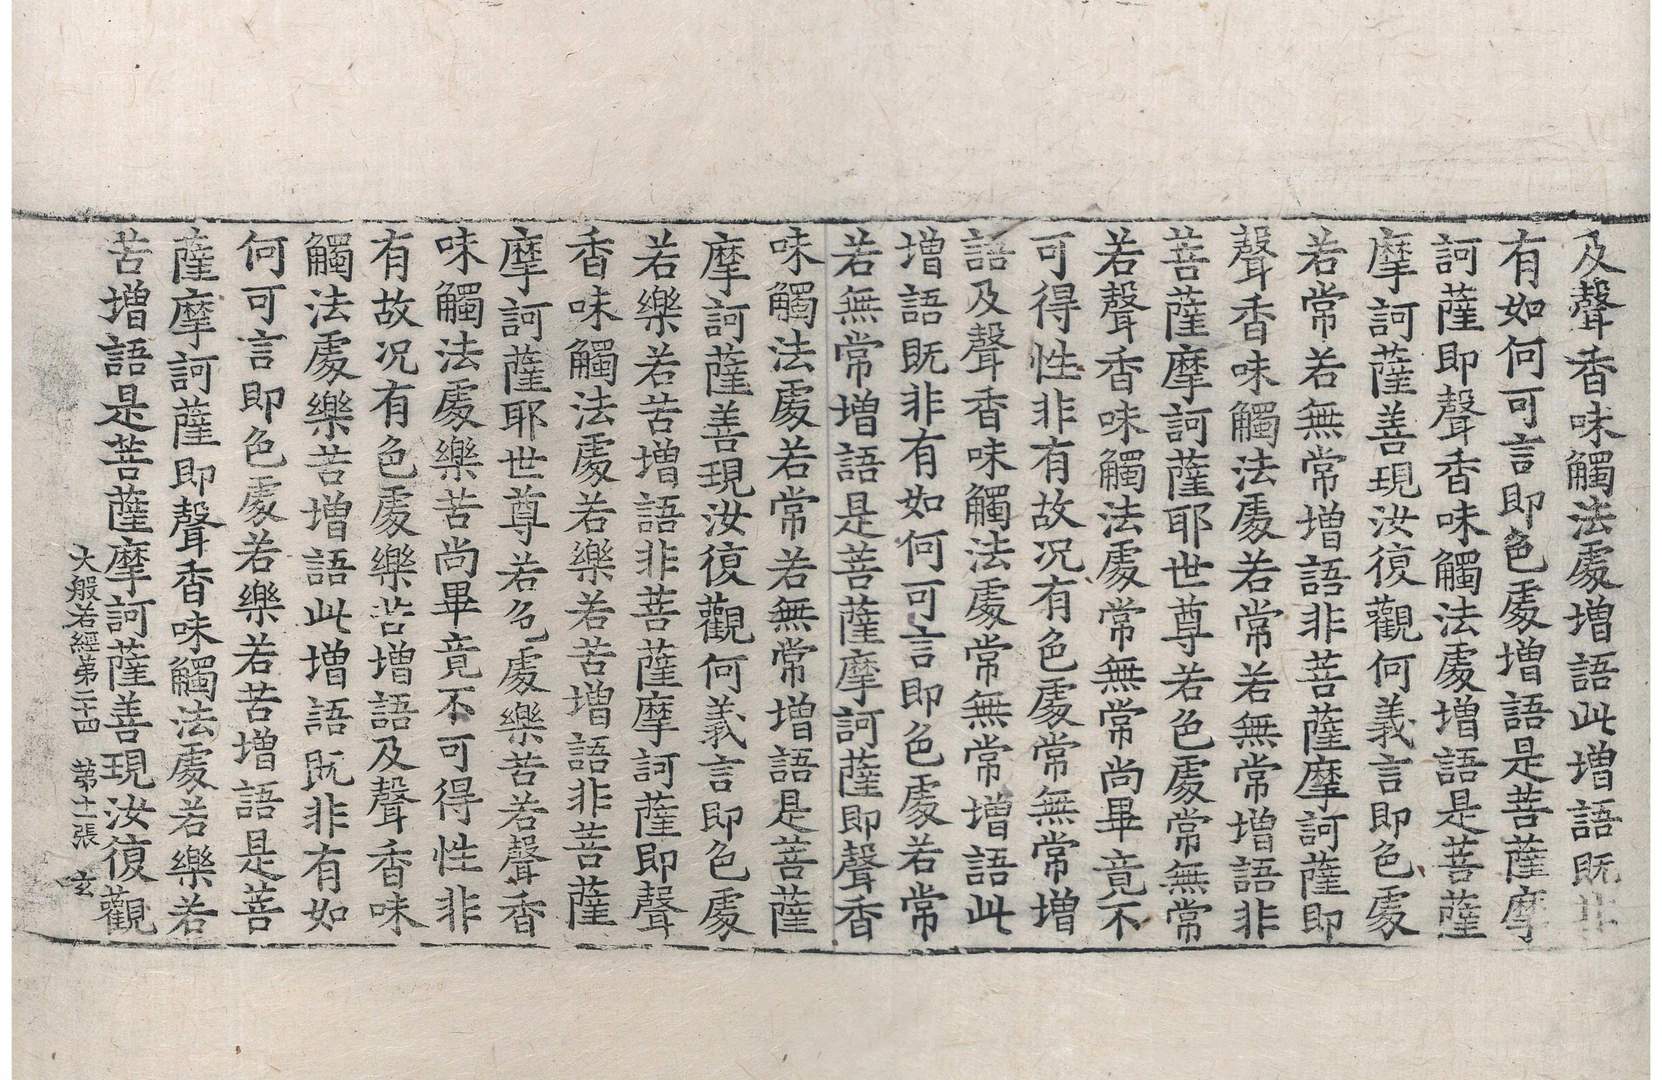 及聲香味觸法處增語此增語既非
有如何可言即色處增語是菩薩摩
訶薩即聲香味觸法處增語是菩薩
摩訶薩善現汝復觀何義言即色處
若常若無常增語非菩薩摩訶薩即
聲香味觸法處若常若無常增語非
菩薩摩訶薩耶世尊若色處常無常
若聲香味觸法處常無常尚畢竟不
可得性非有故况有色處常無常增
語及聲香味觸法處常無常增語此
增語既非有如何可言即色處若常
若無常增語是菩薩摩訶薩即聲香
味觸法處若常若無常增語是菩薩
摩訶薩善現汝復觀何義言即色處
若樂若苦增語非菩薩摩訶薩即聲
香味觸法處若樂若苦增語非菩薩
摩訶薩耶世尊若色處樂苦若聲香
味觸法處樂苦尚畢竟不可得性非
有故况有色處樂苦增語及聲香味
觸法處樂苦增語此增語既非有如
何可言即色處若樂若苦增語是菩
薩摩訶薩即聲香味觸法處若樂若
苦增語是菩薩摩訶薩善現汝復觀
大般若經第二十四 第十二張 玄